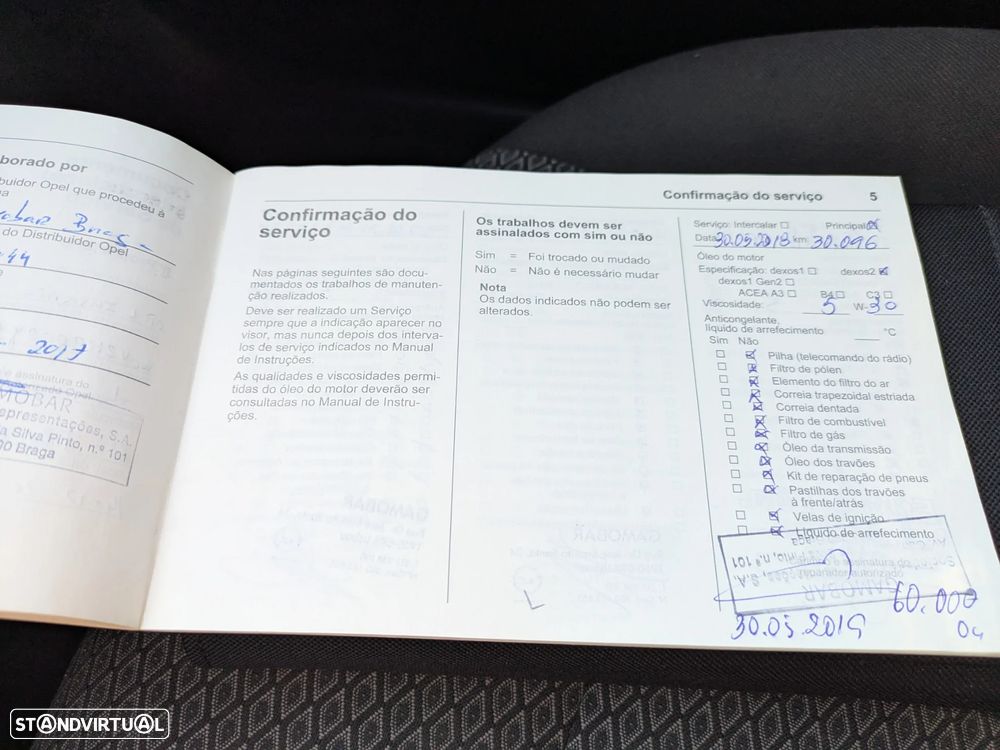 borado por
buidor Opel que procedeu à
do Distribuidor Opel
2017
e assinatura do
AMOBAR
epresentações, S.A.
a Silva Pinto, n.º 101
Braga
Confirmação do
serviço
Nas páginas seguintes são docu-
mentados os trabalhos de manuten-
ção realizados.
Deve ser realizado um Serviço
sempre que a indicação aparecer no
visor, mas nunca depois dos interva-
los de serviço indicados no Manual
de Instruções.
As qualidades e viscosidades permi-
tidas do óleo do motor deverão ser
consultadas no Manual de Instru-
ções.
Os trabalhos devem ser
assinalados com sim ou não
Sim = Foi trocado ou mudado
Não = Não é necessário mudar
Nota
Os dados indicados não podem ser
alterados.
Confirmação do serviço 5
Serviço: Intercalar Principal
Data 30.05.2018 km: 30.096
Óleo do motor
Especificação: dexos1 dexos2
dexos1 Gen2
ACEA A3 B4 C3
Viscosidade: 5 W- 30
Anticongelante,
líquido de arrefecimento °C
Sim Não
Pilha (telecomando do rádio)
Filtro de pólen
Elemento do filtro do ar
Correia trapezoidal estriada
Correia dentada
Filtro de combustível
Filtro de gás
Óleo da transmissão
Óleo dos travões
Kit de reparação de pneus
Pastilhas dos travões
à frente/atrás
Velas de ignição
Líquido de arrefecimento
GAMOBAR
60.000
30.05.2019
STANDVIRTUAL